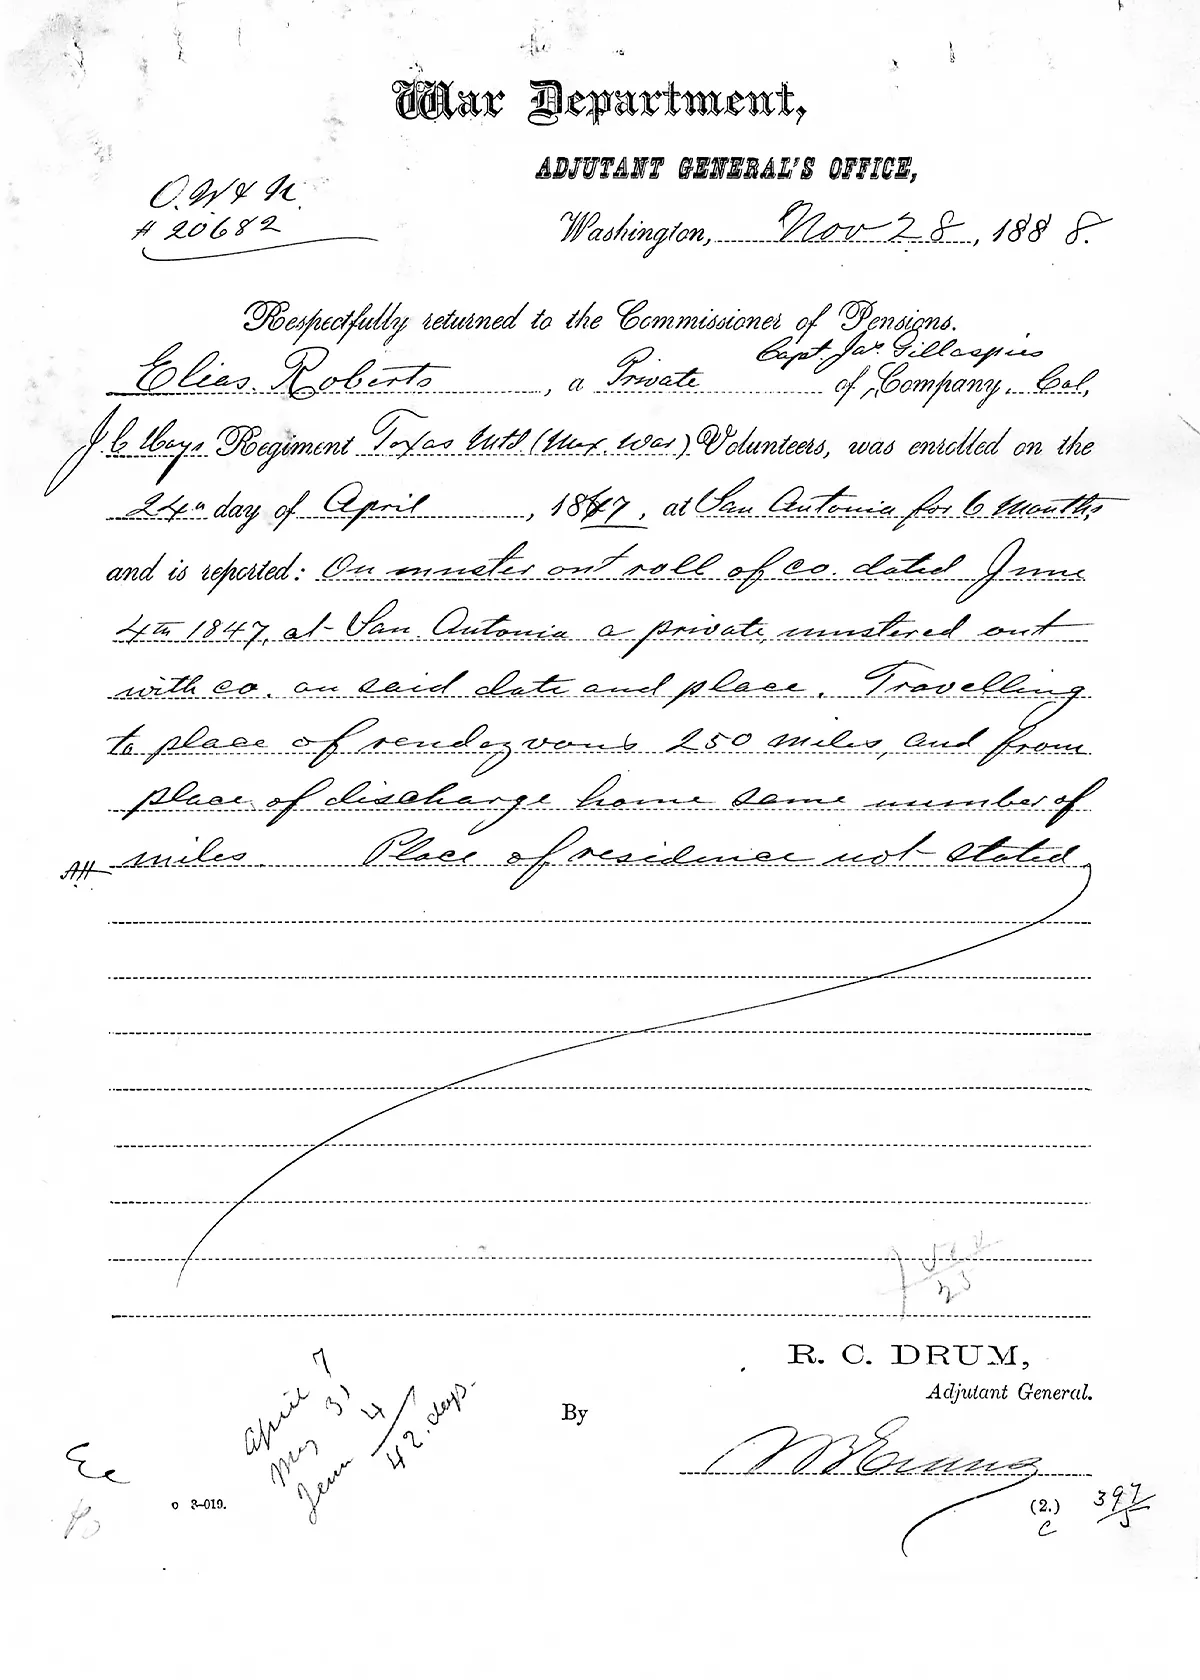 War Department,
ADJUTANT GENERAL'S OFFICE,
O. W & N.
# 20682
Washington, Nov 28, 1888.
Respectfully returned to the Commissioner of Pensions.
Capt. Jas. Gillaspies
Elias. Roberts, a Private of Company, Col,
J C Hays Regiment Texas Mtd (Mex. War) Volunteers, was enrolled on the
24th day of April, 1847, at San Antonia for 6 Months
and is reported: On muster out roll of co. dated June
4th 1847, at San Antonia a private, mustered out
with co. on said date and place. Travelling
to place of rendezvous 250 miles, and from
place of discharge home same number of
miles. Place of residence not stated
AH
R. C. DRUM,
Adjutant General.
By
April 7
May 31
June 4
42. days.
3-019.
(2.)
C
397/5